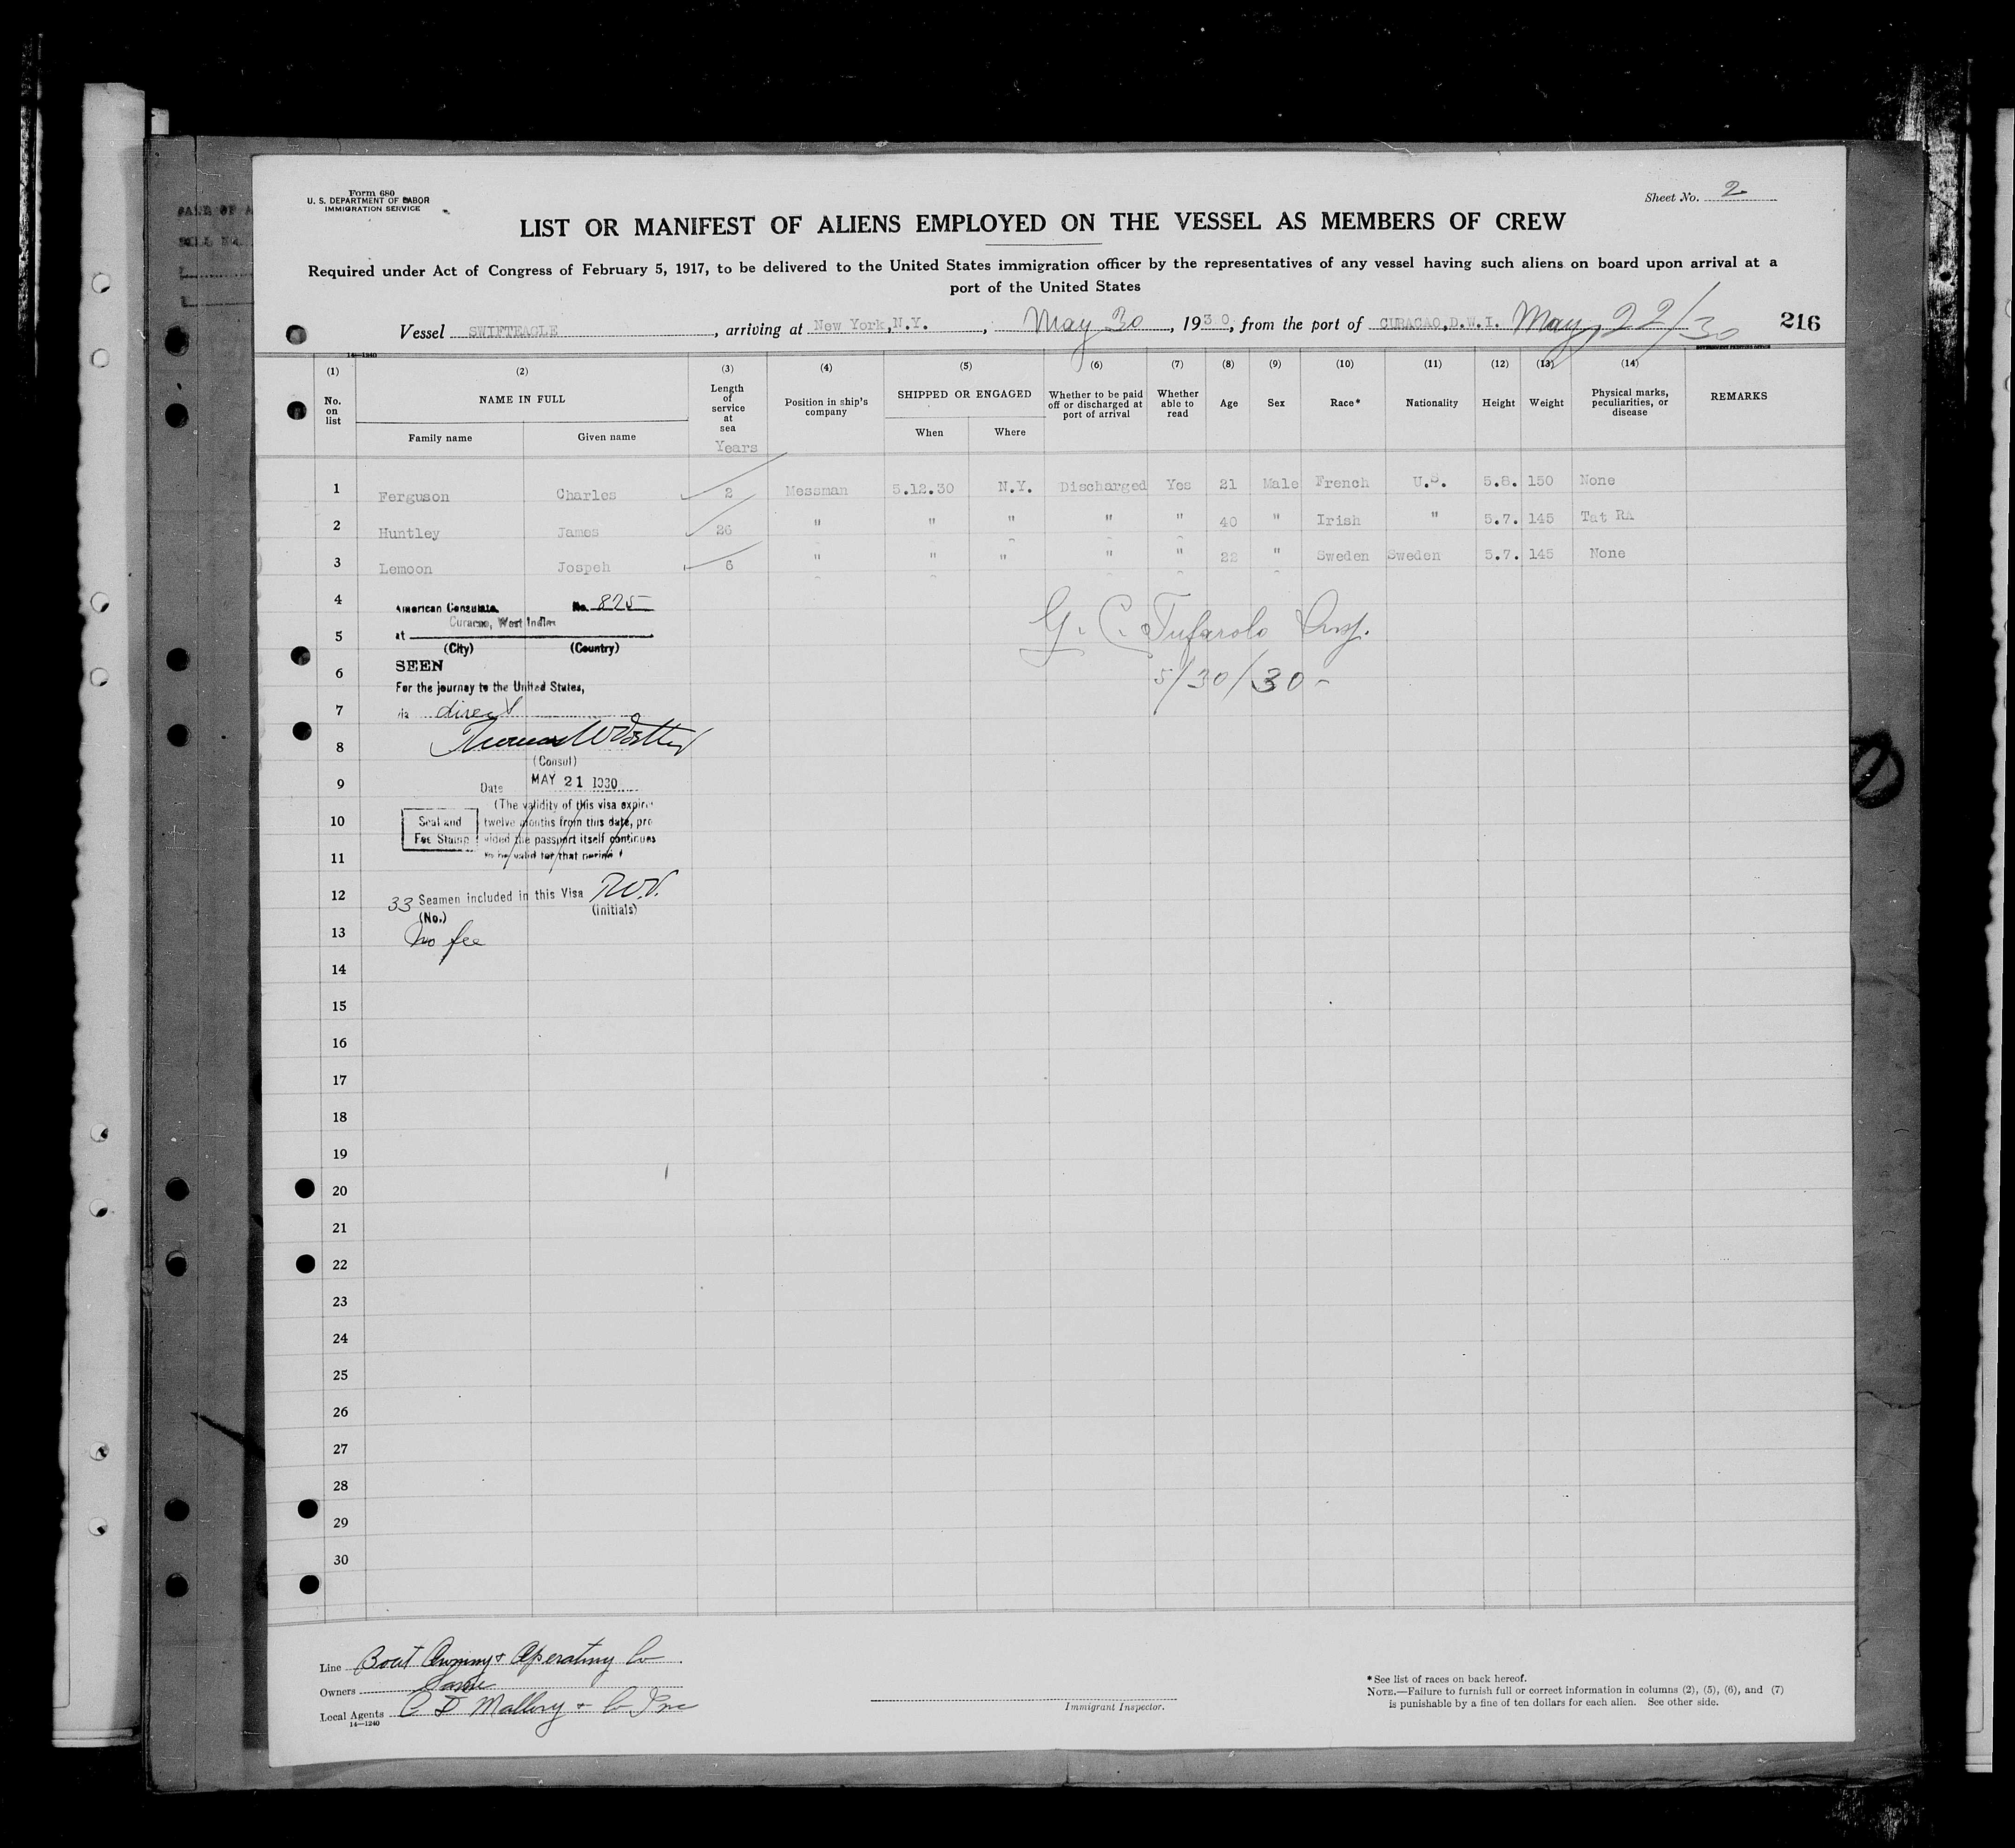 Form 680
U. S. DEPARTMENT OF LABOR
IMMIGRATION SERVICE
Sheet No. 2
LIST OR MANIFEST OF ALIENS EMPLOYED ON THE VESSEL AS MEMBERS OF CREW
Required under Act of Congress of February 5, 1917, to be delivered to the United States immigration officer by the representatives of any vessel having such aliens on board upon arrival at a
port of the United States
Vessel SWIFTEAGLE, arriving at New York,N.Y., May 30, 1930, from the port of CURACAO,D.W.I. May, 22/30 216
14—1240 GOVERNMENT PRINTING OFFICE
(1) (2) (3) (4) (5) (6) (7) (8) (9) (10) (11) (12) (13) (14)
No. on list NAME IN FULL Family name Given name Length of service at sea Years Position in ship's company SHIPPED OR ENGAGED When Where Whether to be paid off or discharged at port of arrival Whether able to read Age Sex Race* Nationality Height Weight Physical marks, peculiarities, or disease REMARKS
1 Ferguson Charles 2 Messman 5.12.30 N.Y. Discharged Yes 21 Male French U.S. 5.8. 150 None
2 Huntley James 26 " " " " " 40 " Irish " 5.7. 145 Tat RA
3 Lemoon Jospeh 6 " " " " " 22 " Sweden Sweden 5.7. 145 None
4
American Consulate, No. 825
Curacao, West Indies
5
at
(City) (Country)
G. C. Tufarolo Insp.
5/30/30-
6
SEEN
For the journey to the United States,
7
via direct
8
(Consul)
9
Date MAY 21 1930
(The validity of this visa expires
10
Seal and Fee Stamp
twelve months from this date, pro
vided the passport itself continues
11
to be valid for that period)
12
33 Seamen included in this Visa
(No.) (initials)
13
No fee
14
15
16
17
18
19
20
21
22
23
24
25
26
27
28
29
30
Line Boat Owning & Operating Co
Owners Same
Local Agents C D Mallory & Co Inc
14—1240
Immigrant Inspector.
* See list of races on back hereof.
NOTE.—Failure to furnish full or correct information in columns (2), (5), (6), and (7)
is punishable by a fine of ten dollars for each alien. See other side.